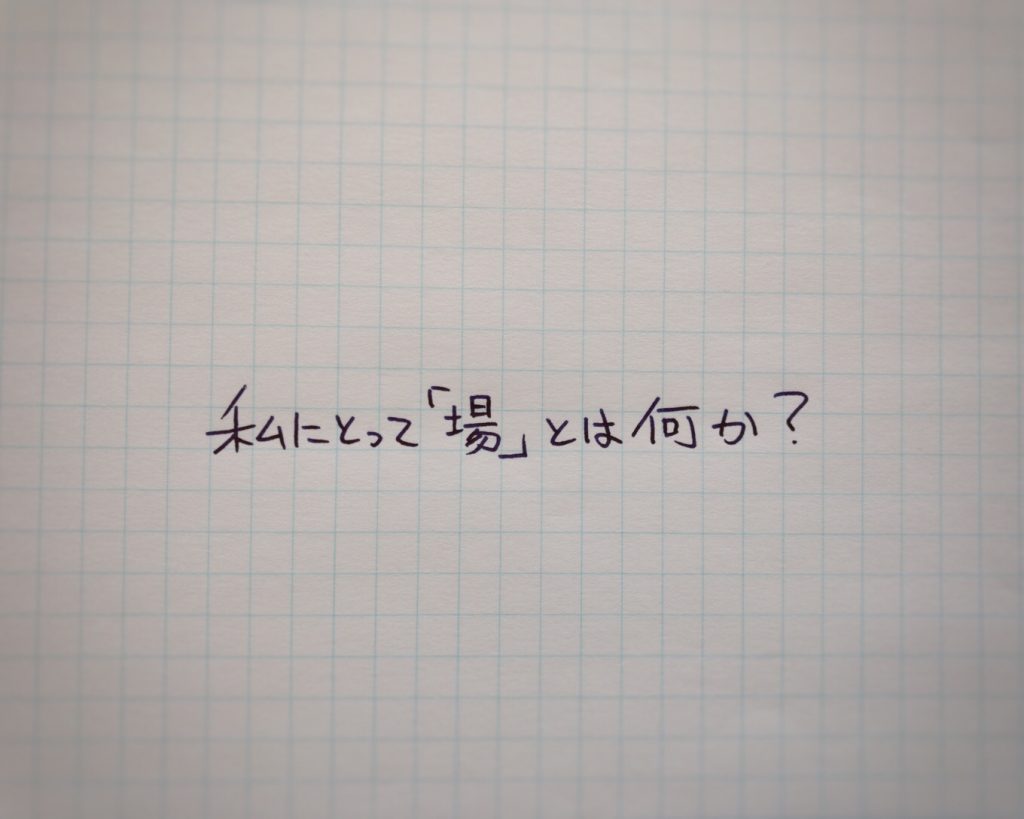 私にとって「場」とは何か?